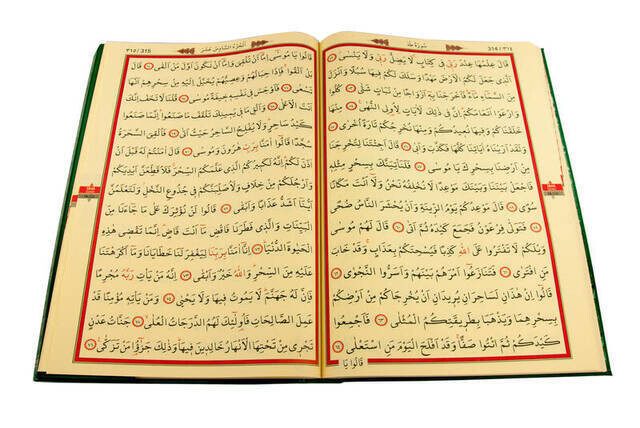 314 / ٣١٤
سُورَةُ طٰهٰ
قَالَ عِلْمُهَا عِنْدَ رَبِّي فِي كِتَابٍ لَا يَضِلُّ رَبِّي وَلَا يَنْسٰى ﴿٥٢﴾
اَلَّذِي جَعَلَ لَكُمُ الْاَرْضَ مَهْدًا وَسَلَكَ لَكُمْ فِيهَا سُبُلًا وَاَنْزَلَ
مِنَ السَّمَاءِ مَاءً فَاَخْرَجْنَا بِهِ اَزْوَاجًا مِنْ نَبَاتٍ شَتّٰى ﴿٥٣﴾ كُلُوا
وَارْعَوْا اَنْعَامَكُمْ اِنَّ فِي ذٰلِكَ لَاٰيَاتٍ لِاُولِي النُّهٰى ﴿٥٤﴾ مِنْهَا
خَلَقْنَاكُمْ وَفِيهَا نُعِيدُكُمْ وَمِنْهَا نُخْرِجُكُمْ تَارَةً اُخْرٰى ﴿٥٥﴾
وَلَقَدْ اَرَيْنَاهُ اٰيَاتِنَا كُلَّهَا فَكَذَّبَ وَاَبٰى ﴿٥٦﴾ قَالَ اَجِئْتَنَا لِتُخْرِجَنَا
مِنْ اَرْضِنَا بِسِحْرِكَ يَا مُوسٰى ﴿٥٧﴾ فَلَنَأْتِيَنَّكَ بِسِحْرٍ مِثْلِهِ
فَاجْعَلْ بَيْنَنَا وَبَيْنَكَ مَوْعِدًا لَا نُخْلِفُهُ نَحْنُ وَلَا اَنْتَ مَكَانًا
سُوًى ﴿٥٨﴾ قَالَ مَوْعِدُكُمْ يَوْمُ الزِّينَةِ وَاَنْ يُحْشَرَ النَّاسُ ضُحًى
﴿٥٩﴾ فَتَوَلّٰى فِرْعَوْنُ فَجَمَعَ كَيْدَهُ ثُمَّ اَتٰى ﴿٦٠﴾ قَالَ لَهُمْ مُوسٰى
وَيْلَكُمْ لَا تَفْتَرُوا عَلَى اللّٰهِ كَذِبًا فَيُسْحِتَكُمْ بِعَذَابٍ وَقَدْ خَابَ
مَنِ افْتَرٰى ﴿٦١﴾ فَتَنَازَعُوا اَمْرَهُمْ بَيْنَهُمْ وَاَسَرُّوا النَّجْوٰى ﴿٦٢﴾
قَالُوا اِنْ هٰذَانِ لَسَاحِرَانِ يُرِيدَانِ اَنْ يُخْرِجَاكُمْ مِنْ اَرْضِكُمْ
بِسِحْرِهِمَا وَيَذْهَبَا بِطَرِيقَتِكُمُ الْمُثْلٰى ﴿٦٣﴾ فَاَجْمِعُوا
كَيْدَكُمْ ثُمَّ ائْتُوا صَفًّا وَقَدْ اَفْلَحَ الْيَوْمَ مَنِ اسْتَعْلٰى ﴿٦٤﴾
قَالُوا يَا
اَلْجُزْءُ السَّادِسَ عَشَرَ
٣١٥ / 315
قَالُوا يَا مُوسٰى اِمَّا اَنْ تُلْقِيَ وَاِمَّا اَنْ نَكُونَ اَوَّلَ مَنْ اَلْقٰى ﴿٦٥﴾ قَالَ
بَلْ اَلْقُوا فَاِذَا حِبَالُهُمْ وَعِصِيُّهُمْ يُخَيَّلُ اِلَيْهِ مِنْ سِحْرِهِمْ اَنَّهَا
تَسْعٰى ﴿٦٦﴾ فَاَوْجَسَ فِي نَفْسِهِ خِيفَةً مُوسٰى ﴿٦٧﴾ قُلْنَا لَا تَخَفْ اِنَّكَ
اَنْتَ الْاَعْلٰى ﴿٦٨﴾ وَاَلْقِ مَا فِي يَمِينِكَ تَلْقَفْ مَا صَنَعُوا اِنَّمَا صَنَعُوا
كَيْدُ سَاحِرٍ وَلَا يُفْلِحُ السَّاحِرُ حَيْثُ اَتٰى ﴿٦٩﴾ فَاُلْقِيَ السَّحَرَةُ
سُجَّدًا قَالُوا اٰمَنَّا بِرَبِّ هٰرُونَ وَمُوسٰى ﴿٧٠﴾ قَالَ اٰمَنْتُمْ لَهُ قَبْلَ اَنْ
اٰذَنَ لَكُمْ اِنَّهُ لَكَبِيرُكُمُ الَّذِي عَلَّمَكُمُ السِّحْرَ فَلَاُقَطِّعَنَّ اَيْدِيَكُمْ
وَاَرْجُلَكُمْ مِنْ خِلَافٍ وَلَاُصَلِّبَنَّكُمْ فِي جُذُوعِ النَّخْلِ وَلَتَعْلَمُنَّ
اَيُّنَا اَشَدُّ عَذَابًا وَاَبْقٰى ﴿٧١﴾ قَالُوا لَنْ نُؤْثِرَكَ عَلٰى مَا جَاءَنَا مِنَ
الْبَيِّنَاتِ وَالَّذِي فَطَرَنَا فَاقْضِ مَا اَنْتَ قَاضٍ اِنَّمَا تَقْضِي هٰذِهِ
الْحَيٰوةَ الدُّنْيَا ﴿٧٢﴾ اِنَّا اٰمَنَّا بِرَبِّنَا لِيَغْفِرَ لَنَا خَطَايَانَا وَمَا اَكْرَهْتَنَا
عَلَيْهِ مِنَ السِّحْرِ وَاللّٰهُ خَيْرٌ وَاَبْقٰى ﴿٧٣﴾ اِنَّهُ مَنْ يَأْتِ رَبَّهُ مُجْرِمًا
فَاِنَّ لَهُ جَهَنَّمَ لَا يَمُوتُ فِيهَا وَلَا يَحْيٰى ﴿٧٤﴾ وَمَنْ يَأْتِهِ مُؤْمِنًا قَدْ
عَمِلَ الصَّالِحَاتِ فَاُولٰئِكَ لَهُمُ الدَّرَجَاتُ الْعُلٰى ﴿٧٥﴾ جَنَّاتُ عَدْنٍ
تَجْرِي مِنْ تَحْتِهَا الْاَنْهَارُ خَالِدِينَ فِيهَا وَذٰلِكَ جَزٰٓؤُا مَنْ تَزَكّٰى ﴿٧٦﴾